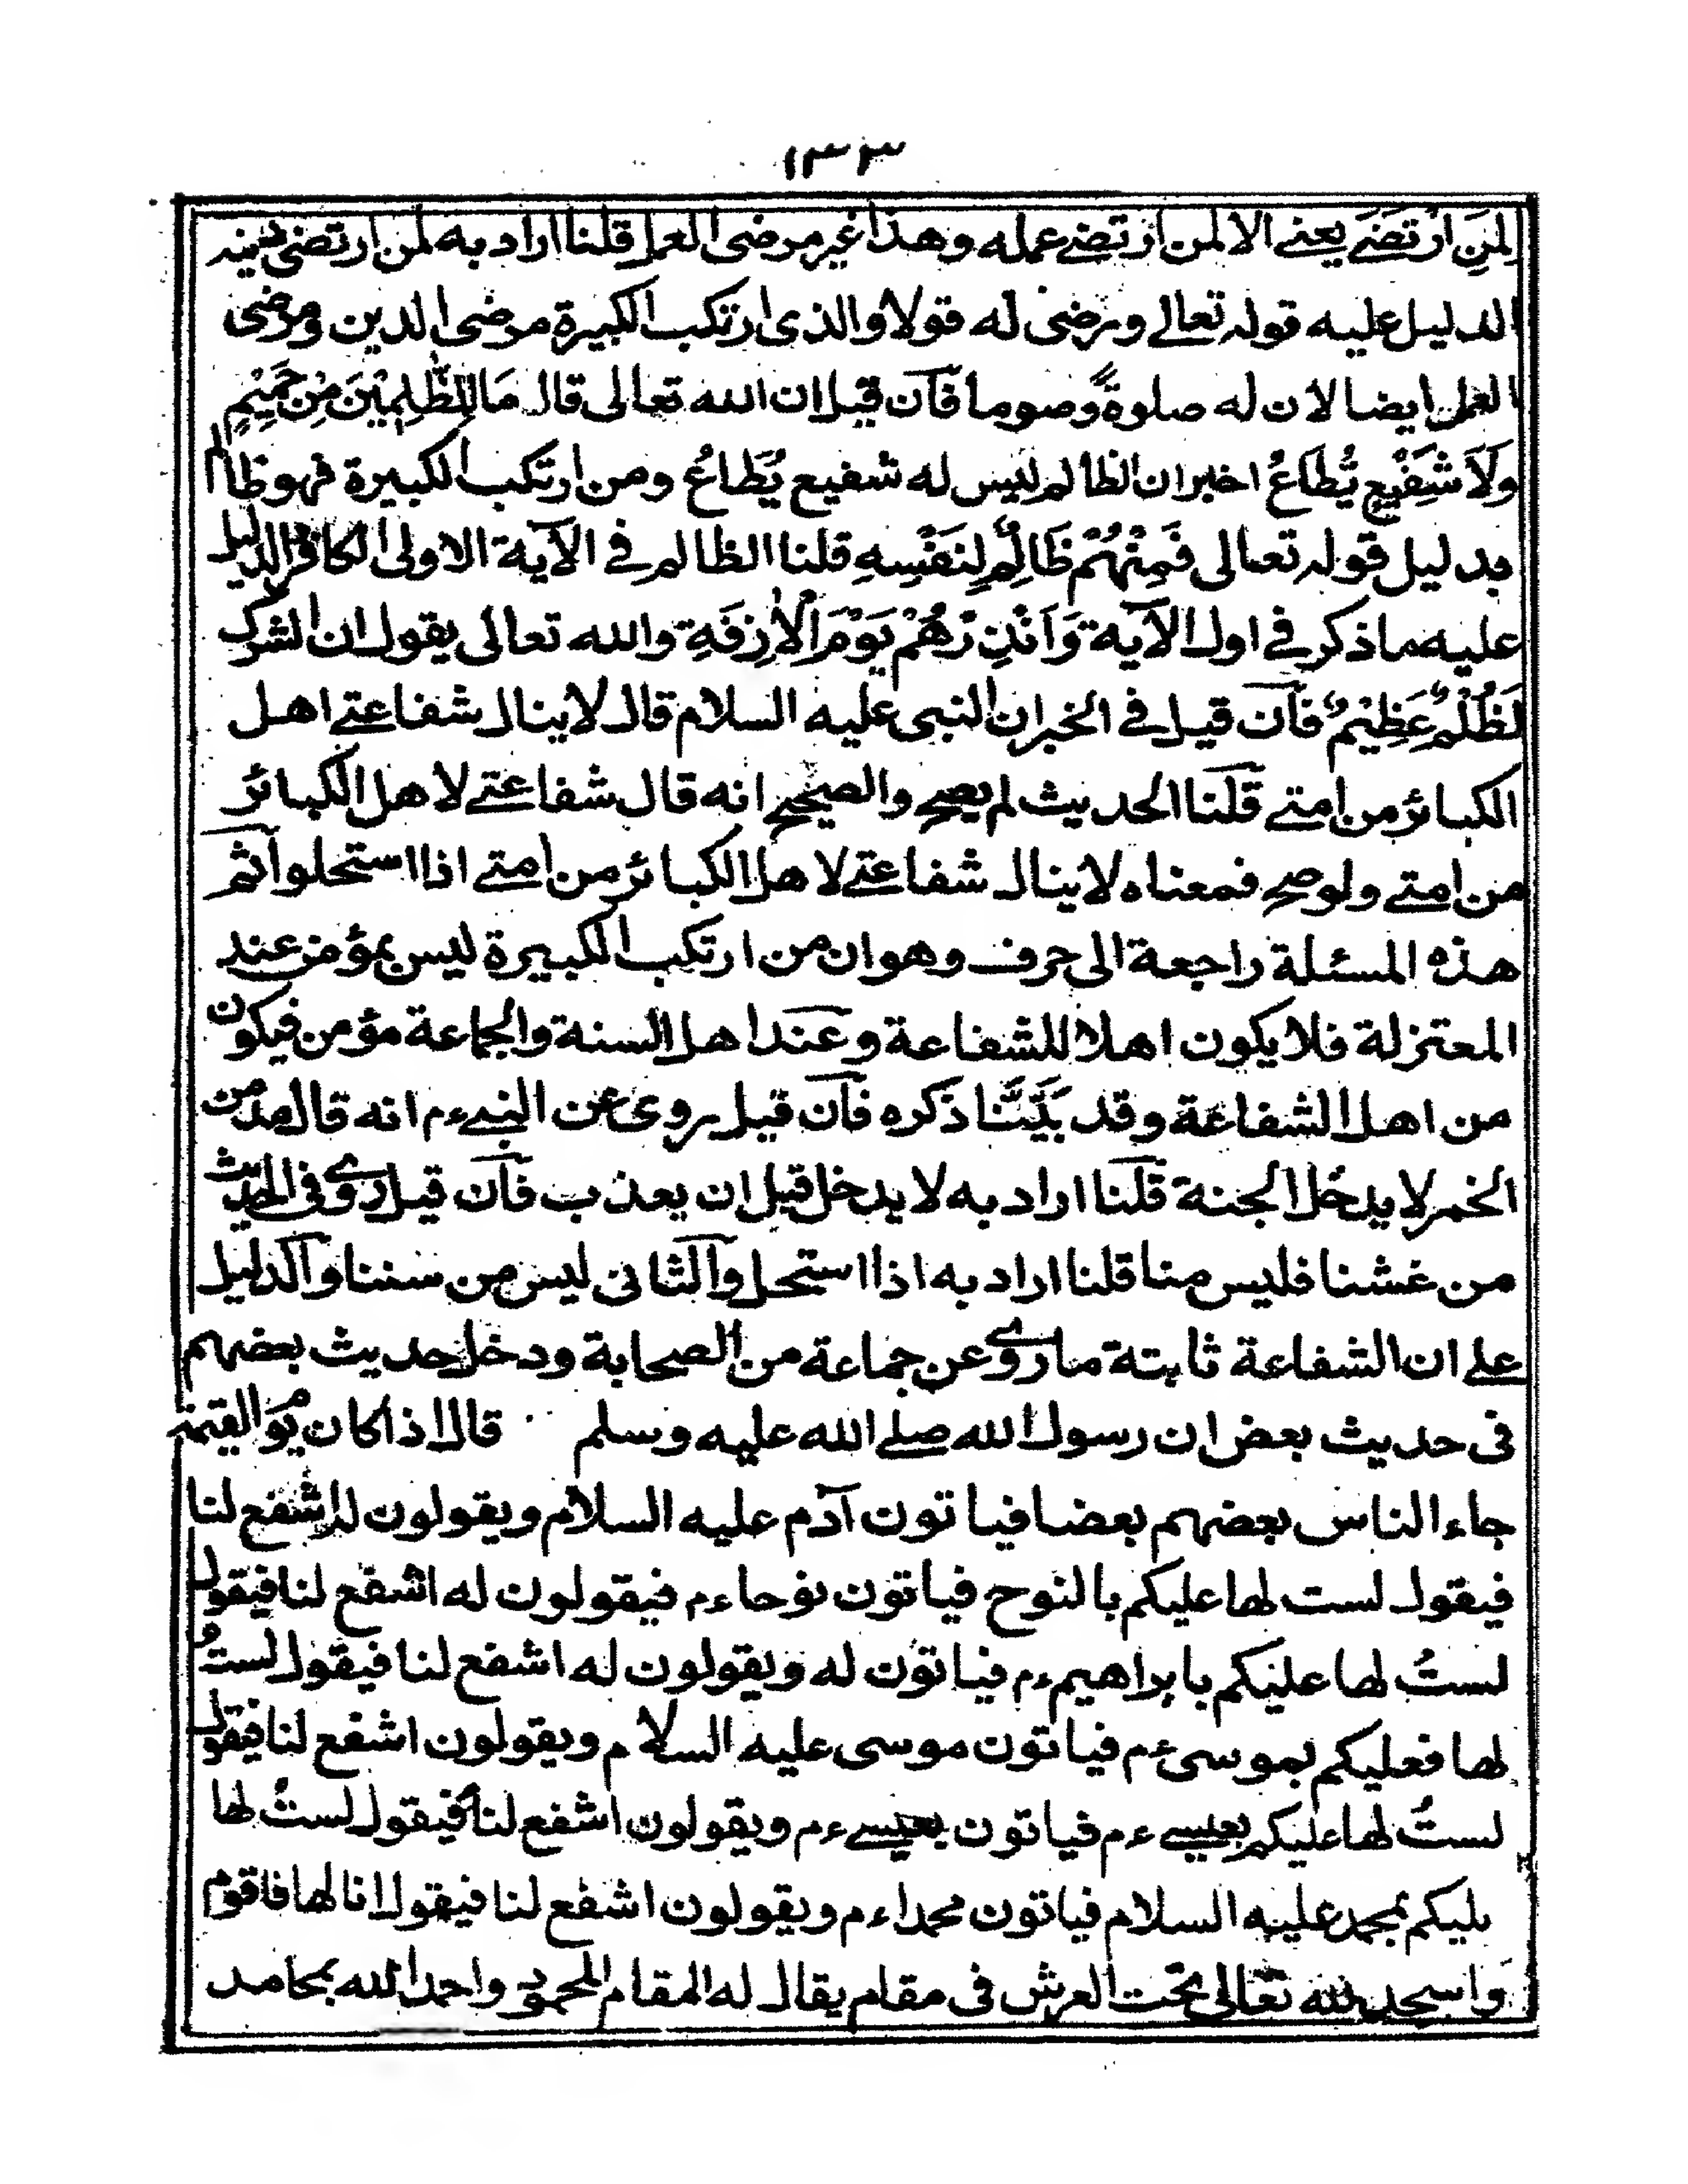 ١٣٣
لِمَنِ ارْتَضَے يعنے الا لمن ارتضے عمله وهذا غير مرضى العمل قلنا اراد به لمن ارتضى دينه
الدليل عليه قوله تعالے ورضى له قولا والذى ارتكب الكبيرة مرضى الدين ومرضى
العمل ايضا لان له صلوةً وصوما فآن قيل ان الله تعالى قال مَا لِلظّٰلِمِيْنَ مِنْ حَمِيْمٍ
وَلَا شَفِيْعٍ يُّطَاعُ اخبر ان الظالم ليس له شفيع يُطَاعُ ومن ارتكب الكبيرة فهو ظالم
بدليل قوله تعالى فَمِنْهُمْ ظَالِمٌ لِنَفْسِهِ قلنا الظالم فے الآية الاولى الكافر الدليل
عليه ما ذكر فے اول الآية وَاَنْذِرْهُمْ يَوْمَ الْاٰزِفَةِ والله تعالى يقول ان الشرك
لَظُلْمٌ عَظِيْمٌ فآن قيل فے الخبر ان النبى عليه السلام قال لا ينال شفاعتے اهل
الكبائر من امتے قلنا الحديث لم يصح والصحيح انه قال شفاعتے لاهل الكبائر
من امتے ولو صح فمعناه لا ينال شفاعتے لاهل الكبائر من امتے اذا استحلوا ثم
هذه المسئلة راجعة الى حرف وهو ان من ارتكب الكبيرة ليس بمؤمن عند
المعتزلة فلا يكون اهلا للشفاعة وعند اهل السنة والجماعة مؤمن فيكون
من اهل الشفاعة وقد بَيَّنَّا ذكره فآن قيل روى عن النبےءم انه قال مدمن
الخمر لا يدخل الجنة قلنا اراد به لا يدخل قبل ان يعذب فآن قيل روى فى الحديث
من غشنا فليس منا قلنا اراد به اذا استحل والثانى ليس من سننا والدليل
علے ان الشفاعة ثابتة ما روى عن جماعة من الصحابة ودخل حديث بعضهم
فى حديث بعض ان رسول الله صلے الله عليه وسلم قال اذا كان يوم القيمة
جاء الناس بعضهم بعضا فياتون آدم عليه السلام ويقولون له اشفع لنا
فيقول لست لها عليكم بالنوح فياتون نوحاءم فيقولون له اشفع لنا فيقول
لستُ لها عليكم بابراهيمءم فياتون له ويقولون له اشفع لنا فيقول لستُ
لها فعليكم بموسىءم فياتون موسى عليه السلام ويقولون اشفع لنا فيقول
لستُ لها عليكم بعيسےءم فياتون بعيسےءم ويقولون اشفع لنا فيقول لستُ لها
عليكم بمحمد عليه السلام فياتون محمداءم ويقولون اشفع لنا فيقول انا لها فاقوم
واسجد لله تعالى تحت العرش فى مقام يقال له المقام المحمود واحمد الله بمحامد